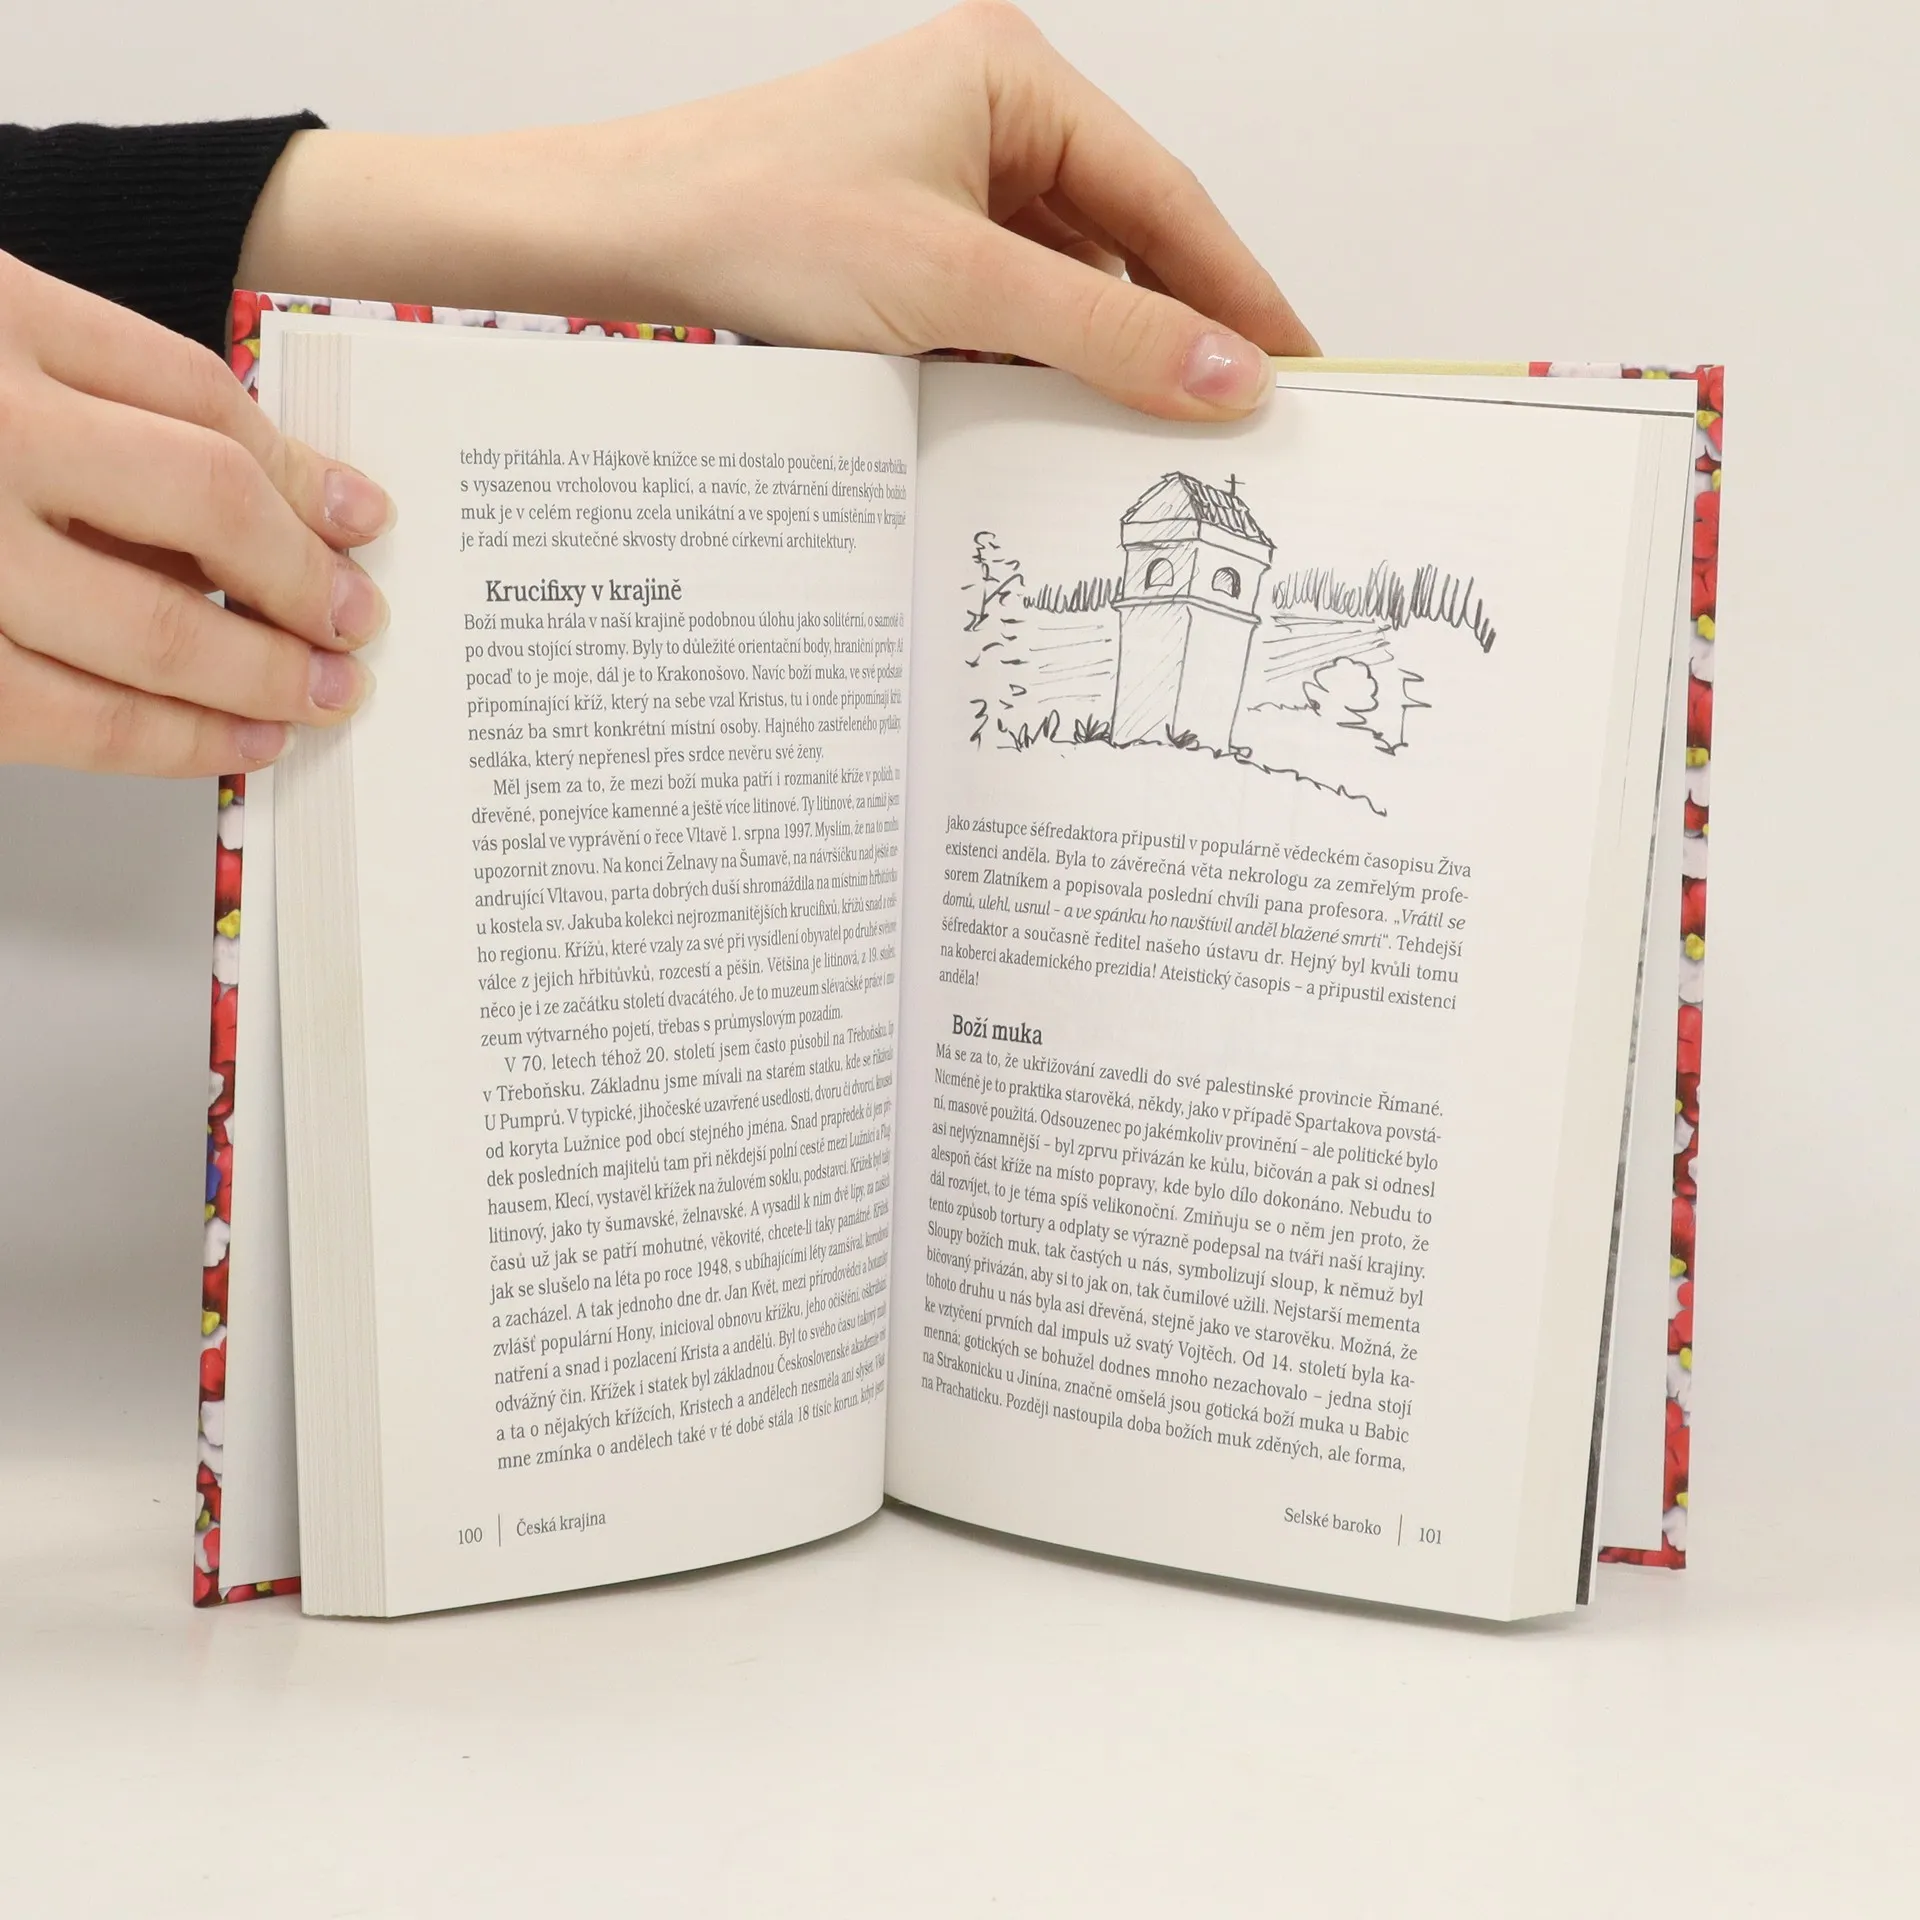 tehdy přitáhla. A v Hájkově knížce se mi dostalo poučení, že jde o stavbičku
s vysazenou vrcholovou kaplicí, a navíc, že ztvárnění dírenských božích
muk je v celém regionu zcela unikátní a ve spojení s umístěním v krajině
je řadí mezi skutečné skvosty drobné církevní architektury.
Krucifixy v krajině
Boží muka hrála v naší krajině podobnou úlohu jako solitérní, o samotě či
po dvou stojící stromy. Byly to důležité orientační body, hraniční prvky. Až
pocaď to je moje, dál je to Krakonošovo. Navíc boží muka, ve své podstatě
připomínající kříž, který na sebe vzal Kristus, tu i onde připomínají kříž
nesnáz ba smrt konkrétní místní osoby. Hajného zastřeleného pytláky,
sedláka, který nepřenesl přes srdce nevěru své ženy.
Měl jsem za to, že mezi boží muka patří i rozmanité kříže v polích, tu
dřevěné, ponejvíce kamenné a ještě více litinové. Ty litinové, za nimiž jsem
vás poslal ve vyprávění o řece Vltavě 1. srpna 1997. Myslím, že na to mohu
upozornit znovu. Na konci Želnavy na Šumavě, na návršíčku nad ještě me-
andrující Vltavou, parta dobrých duší shromáždila na místním hřbitůvku
u kostela sv. Jakuba kolekci nejrozmanitějších krucifixů, křížů snad z celé-
ho regionu. Křížů, které vzaly za své při vysídlení obyvatel po druhé světové
válce z jejich hřbitůvků, rozcestí a pěšin. Většina je litinová, z 19. století,
něco je i ze začátku století dvacátého. Je to muzeum slévačské práce i mu-
zeum výtvarného pojetí, třebas s průmyslovým pozadím.
V 70. letech téhož 20. století jsem často působil na Třeboňsku, líp
v Třeboňsku. Základnu jsme mívali na starém statku, kde se říkávalo
U Pumprů. V typické, jihočeské uzavřené usedlosti, dvoru či dvorci, kousek
od koryta Lužnice pod obcí stejného jména. Snad prapředek či jen pře-
dek posledních majitelů tam při někdejší polní cestě mezi Lužnicí a Flug-
hausem, Klecí, vystavěl křížek na žulovém soklu, podstavci. Křížek byl taky
litinový, jako ty šumavské, želnavské. A vysadil k nim dvě lípy, za našich
časů už jak se patří mohutné, věkovité, chcete-li taky památné. Křížek,
jak se slušelo na léta po roce 1948, s ubíhajícími léty zamšíval, korodoval
a zacházel. A tak jednoho dne dr. Jan Květ, mezi přírodovědci a botaniky
zvlášť populární Hony, inicioval obnovu křížku, jeho očištění, oškrabání
natření a snad i pozlacení Krista a andělů. Byl to svého času takový malý
odvážný čin. Křížek i statek byl základnou Československé akademie věd
a ta o nějakých křížcích, Kristech a andělech nesměla ani slyšet. Však
mne zmínka o andělech také v té době stála 18 tisíc korun, když jsem
100 Česká krajina
jako zástupce šéfredaktora připustil v populárně vědeckém časopisu Živa
existenci anděla. Byla to závěrečná věta nekrologu za zemřelým profe-
sorem Zlatníkem a popisovala poslední chvíli pana profesora. „Vrátil se
domů, ulehl, usnul – a ve spánku ho navštívil anděl blažené smrti“. Tehdejší
šéfredaktor a současně ředitel našeho ústavu dr. Hejný byl kvůli tomu
na koberci akademického prezidia! Ateistický časopis – a připustil existenci
anděla!
Boží muka
Má se za to, že ukřižování zavedli do své palestinské provincie Římané.
Nicméně je to praktika starověká, někdy, jako v případě Spartakova povstá-
ní, masově použitá. Odsouzenec po jakémkoliv provinění – ale politické bylo
asi nejvýznamnější – byl zprvu přivázán ke kůlu, bičován a pak si odnesl
alespoň část kříže na místo popravy, kde bylo dílo dokonáno. Nebudu to
dál rozvíjet, to je téma spíš velikonoční. Zmiňuju se o něm jen proto, že
tento způsob tortury a odplaty se výrazně podepsal na tváři naší krajiny.
Sloupy božích muk, tak častých u nás, symbolizují sloup, k němuž byl
bičovaný přivázán, aby si to jak on, tak čumilové užili. Nejstarší mementa
tohoto druhu u nás byla asi dřevěná, stejně jako ve starověku. Možná, že
ke vztyčení prvních dal impuls už svatý Vojtěch. Od 14. století byla ka-
menná; gotických se bohužel dodnes mnoho nezachovalo – jedna stojí
na Strakonicku u Jinína, značně omšelá jsou gotická boží muka u Babic
na Prachaticku. Později nastoupila doba božích muk zděných, ale forma,
Selské baroko 101